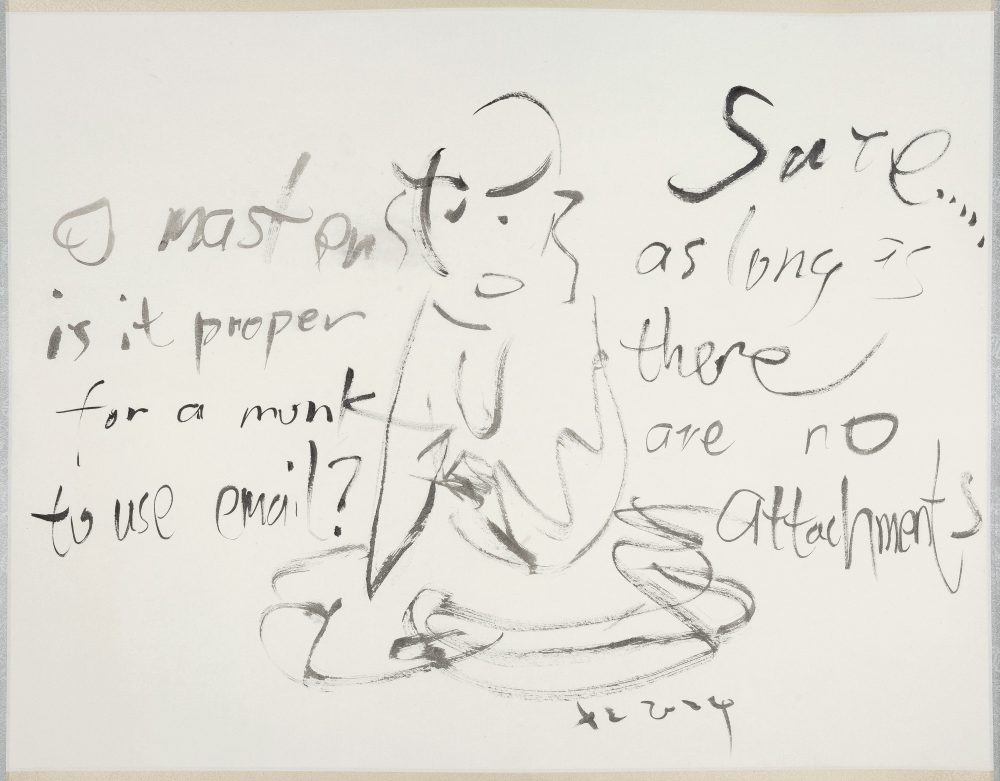 O master
is it proper
for a monk
to use email?
Sure.....
as long as
there
are no
attachments